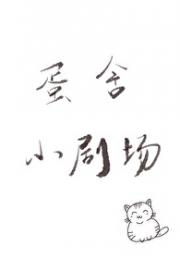 蛋舍
小剧场